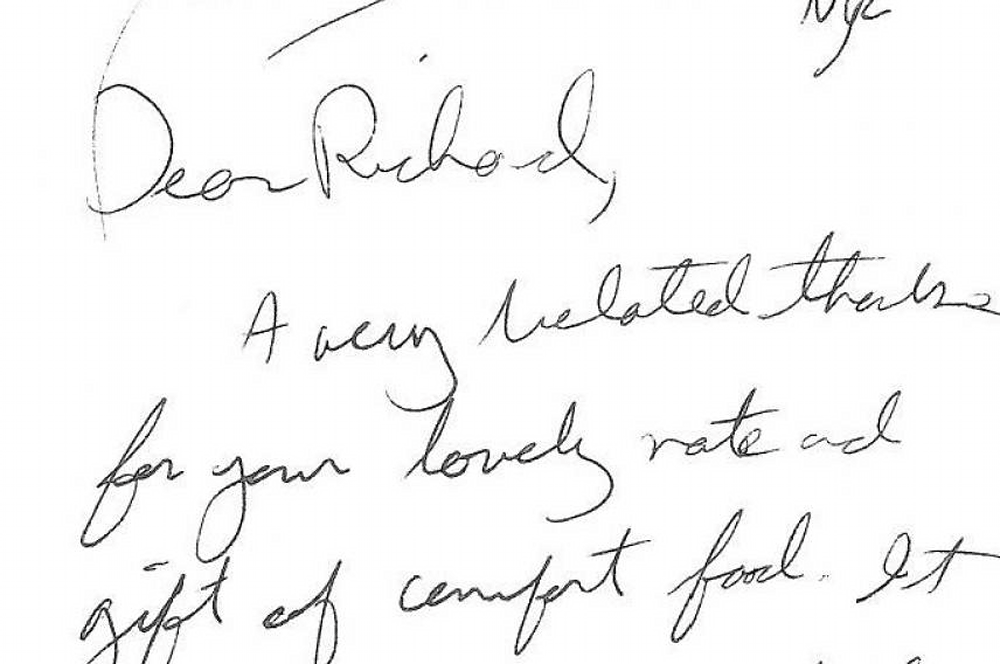 NYC
Dear Richard,
A very belated thanks
for your lovely note and
gift of comfort food. It